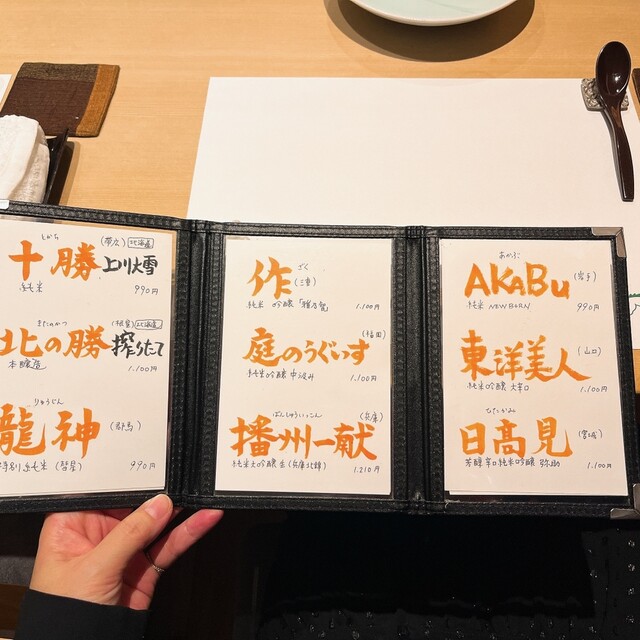 とかち
(帯広) 北海道
十勝 上川大雪
純米 990円
きたのかつ
(根室) 北海道
北の勝 搾りたて
本醸造 1.100円
りゅうじん
龍神 (群馬)
特別純米 (彗星) 990円
ざく
作 (三重)
純米吟醸「雅乃智 1.100円
(福田)
庭のうぐいす
純米吟醸 中汲み 1.100円
ばんしゅういっこん
(兵庫)
播州一献
純米大吟醸 生 (兵庫北錦) 1.210円
あかぶ
AKABu (岩手)
純米 NEWBORN 990円
東洋美人 (山口)
純米吟醸 大辛口 1.100円
ひたかみ
日高見 (宮城)
芳醇辛口純米吟醸 弥助 1.100円